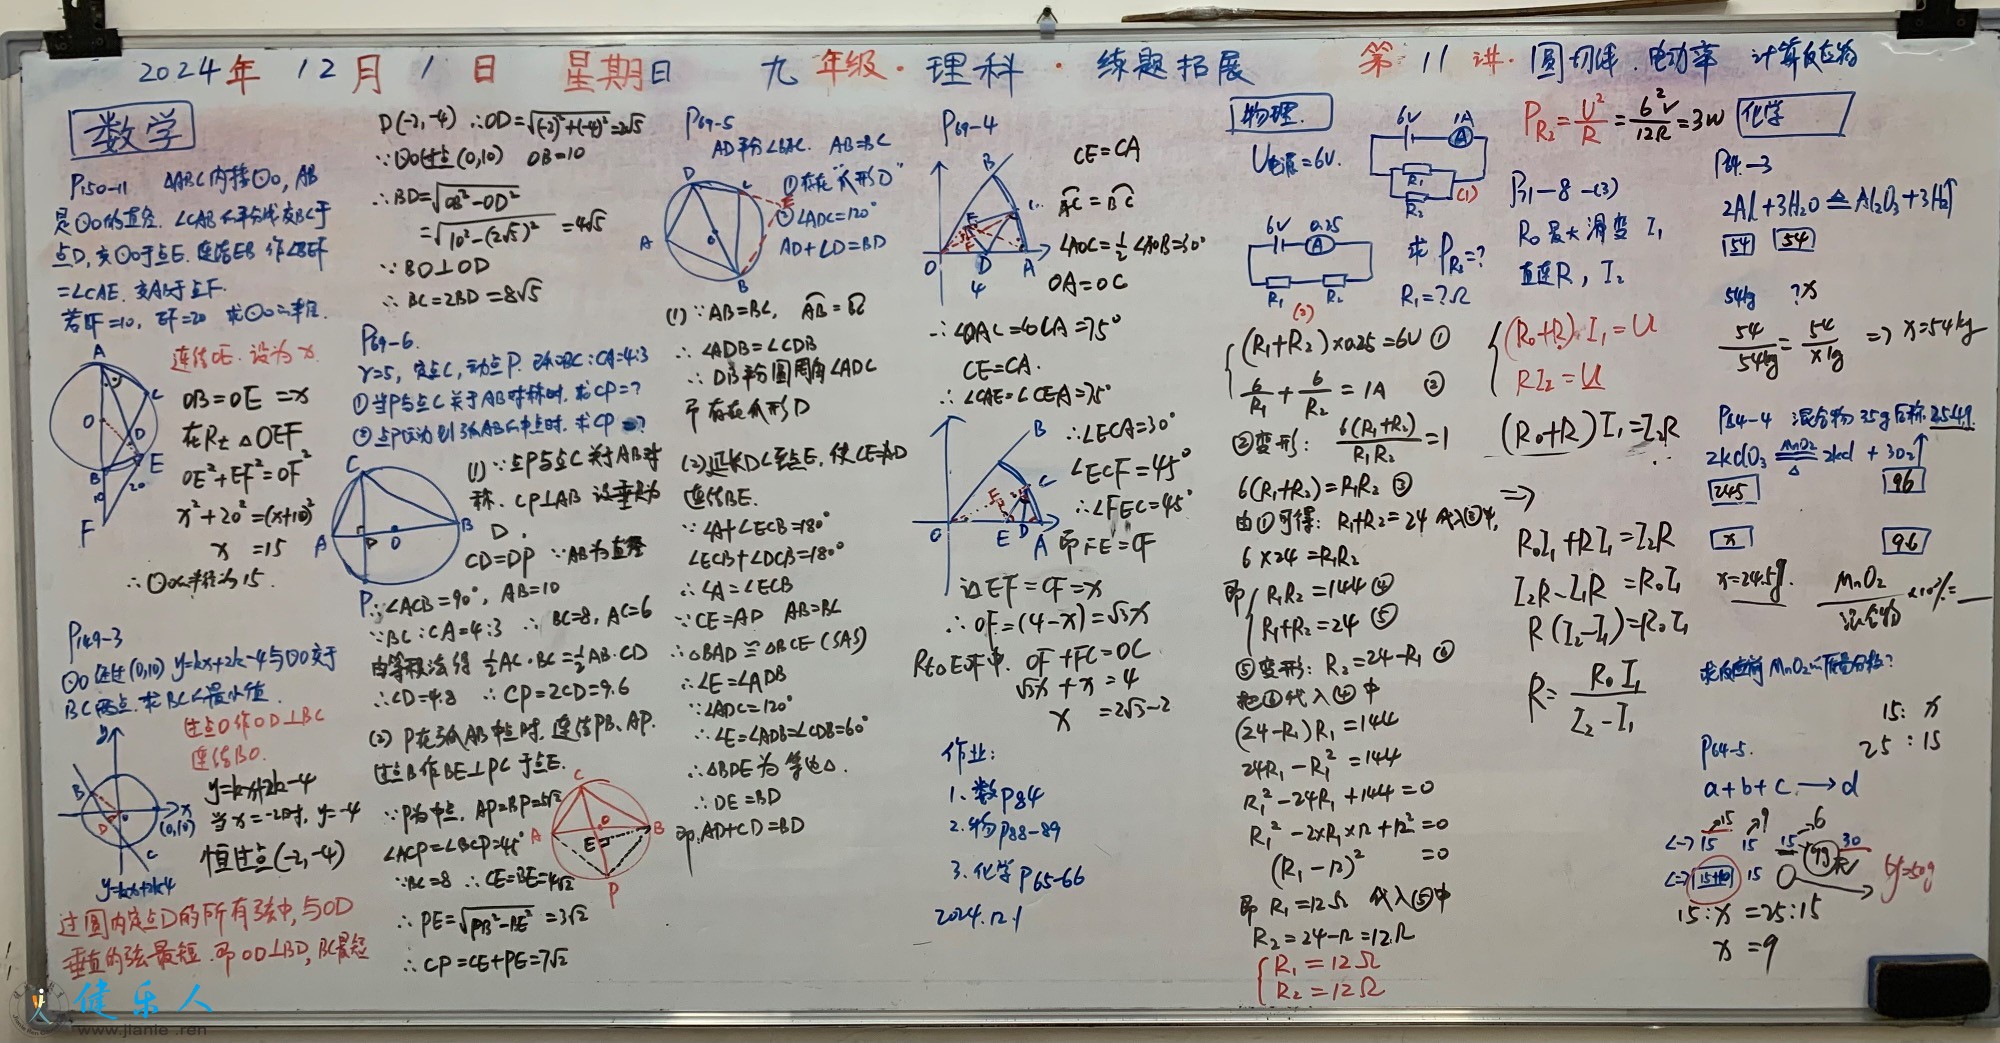 2024年 12月 1日 星期日 九年级·理科·练题拓展 第11讲·圆切线.电功率 计算反应物
数学
P150-11 △ABC内接⊙O, AB
是⊙O的直径. ∠CAB的平分线交BC于
点D, 交⊙O于点E. 连结EB 作∠BEF
=∠CAE. 交AB于点F.
若BF=10, EF=20 求⊙O的半径.
连结OE. 设为x.
A
O
C
D
B
E
10
20
F
OB=OE=x
在Rt△OEF
OE²+EF²=OF²
x²+20²=(x+10)²
x =15
∴⊙O的半径为15.
P149-3
⊙O经过(0,10) y=kx+2k-4与⊙O交于
BC两点. 求BC的最小值.
过点O作OD⊥BC
连结BO.
y
B
D
O
x
(0,10)
C
y=kx+2k-4
y=kx+2k-4
当x=-2时, y=-4
恒过点(-2,-4)
过圆内定点D的所有弦中, 与OD
垂直的弦最短. 即OD⊥BD, BC最短
D(-2,-4) ∴OD=√(-2)²+(-4)²=2√5
∵⊙O过点(0,10) OB=10
∴BD=√OB²-OD²
=√10²-(2√5)² =4√5
∵BO⊥OD
∴BC=2BD=8√5
P69-6.
r=5, 定点C, 动点P. 已知BC:CA=4:3
①当P与点C关于AB对称时. 求CP=?
②点P运动到弧AB的中点时. 求CP=?
C
A
D
O
B
P
(1)∵点P与点C关于AB对
称. CP⊥AB 设垂足为
D.
CD=DP ∵AB为直径
∴∠ACB=90°, AB=10
∵BC:CA=4:3 ∴BC=8, AC=6
由等积法得 ½AC·BC=½AB·CD
∴CD=4.8 ∴CP=2CD=9.6
(2) P在弧AB中点时. 连结PB、AP.
过点B作BE⊥PC于点E.
∵P为中点. AP=BP=5√2
∠ACP=∠BCP=45°
∵BC=8 ∴CE=BE=4√2
∴PE=√PB²-BE² =3√2
∴CP=CE+PE=7√2
C
A
O
B
E
P
P69-5
AD平分∠BAC. AB=BC
D
C
E
A
O
B
①存在"爪形D"
②∠ADC=120°
AD+CD=BD
(1)∵AB=BC, AB=BC
∴∠ADB=∠CDB
∴DB平分圆周角∠ADC
即存在爪形D
(2)延长DC至点E, 使CE=AD
连结BE.
∵∠A+∠ECB=180°
∠ECB+∠DCB=180°
∴∠A=∠ECB
∵CE=AD AB=BC
∴△BAD≌△BCE(SAS)
∴∠E=∠ADB
∵∠ADC=120°
∴∠E=∠ADB=∠CDB=60°
∴△BDE为等边△.
∴DE=BD
即.AD+CD=BD
P69-4
B
E
C
F
O
D
A
4
CE=CA
AC=BC
∠AOC=½∠AOB=30°
OA=OC
∴∠OAC=∠OCA=75°
CE=CA.
∴∠CAE=∠CEA=75°
B
C
F
O
E
D
A
∴∠ECA=30°
∠ECF=45°
∴∠FEC=45°
即FE=CF
设EF=CF=x
∴OF=(4-x)=√3x
Rt△OEF中. OF+FC=OC
√3x+x=4
x =2√3-2
作业:
1. 数P84
2. 物P88-89
3. 化学P65-66
2024.12.1
物理.
U电源=6V.
6V 1A
A
R₁
R₂
(1)
6V 0.25
A
R₁ R₂
(2)
求P_R₂=?
R₁=?Ω
(R₁+R₂)×0.25=6V ①
6/R₁+6/R₂=1A ②
②变形: 6(R₁+R₂)/R₁R₂=1
6(R₁+R₂)=R₁R₂ ③
由①可得: R₁+R₂=24 代入③中,
6×24=R₁R₂
即 R₁R₂=144 ④
R₁+R₂=24 ⑤
⑤变形: R₂=24-R₁ ⑥
把⑥代入④中
(24-R₁)R₁=144
24R₁-R₁²=144
R₁²-24R₁+144=0
R₁²-2×R₁×12+12²=0
(R₁-12)² =0
即 R₁=12Ω 代入⑤中
R₂=24-12=12Ω
R₁=12Ω
R₂=12Ω
P_R₂=U²/R=6²V/12R=3W
P31-8-(3)
R₀最大滑变 I₁
直连R, I₂
(R₀+R)I₁=U
RI₂=U
(R₀+R)I₁=I₂R
=>
R₀I₁+RI₁=I₂R
I₂R-I₁R=R₀I₁
R(I₂-I₁)=R₀I₁
R=R₀I₁/I₂-I₁
化学
P64-3
2Al+3H₂O≜Al₂O₃+3H₂↑
54 54
54kg ?x
54/54kg=54/x kg => x=54kg
P64-4 混合物35g 后称25.4g.
2KClO₃ MnO₂/△ 2KCl+3O₂↑
245 96
x 9.6
x=24.5g. MnO₂/混合物×100%=
求反应前MnO₂的质量分数?
15: x
25:15
P64-5.
a+b+c→d
15 9 6
<-> 15 15 15 30
<=> 15+10 15 0
15:x=25:15
x=9
健乐人
www.jianle.ren